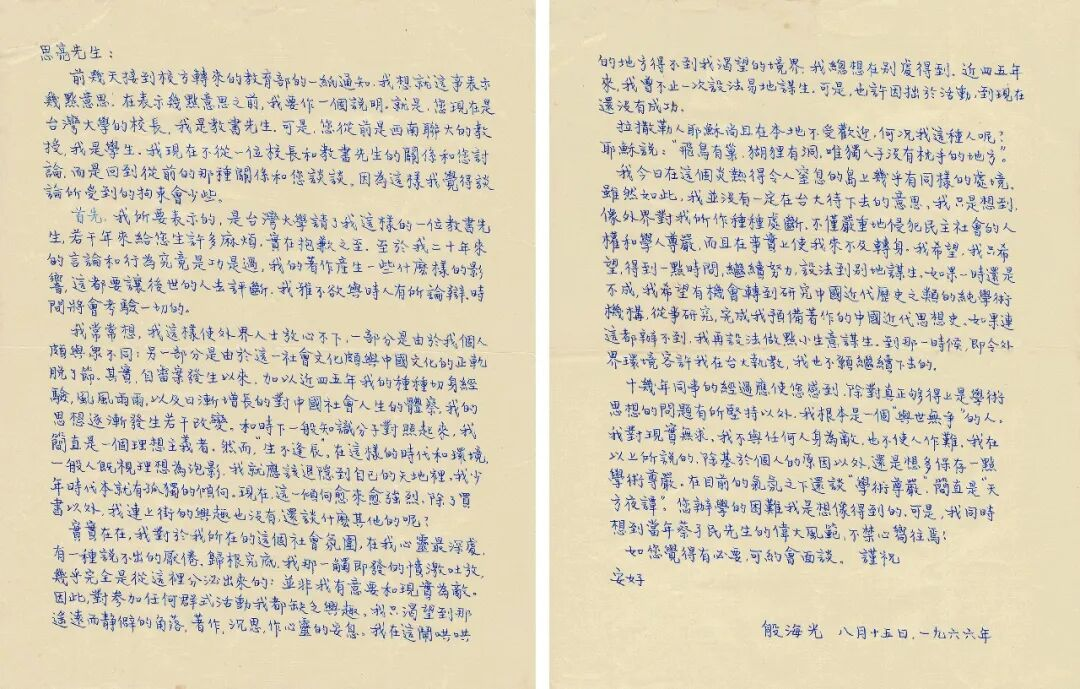 思亮先生：
前幾天接到校方轉來的教育部的一紙通知。我想就這事表示
幾點意思。在表示幾點意思之前，我要作一個說明。就是，您現在是
台灣大學的校長，我是教書先生。可是，您從前是西南聯大的教
授，我是學生。我現在不從一位校長和教書先生的關係和您討
論，而是回到從前的那種關係和您談談。因為這樣我覺得談
論所受到的拘束會少些。
首先，我所要表示的，是台灣大學請了我這樣的一位教書先
生，若干年來給您生許多麻煩，實在抱歉之至。至於我二十年來
的言論和行為究竟是功是過，我的著作產生一些什麼樣的影
響，這都要讓後世的人去評斷。我雅不欲與時人有所論辯。時
間將會考驗一切的。
我常常想，我這樣使外界人士放心不下，一部分是由於我個人
頗與眾不同；另一部分是由於這一社會文化頗與中國文化的正軌
脫了節。其實，自雷案發生以來，加以近四五年我的種種切身經
驗，風風雨雨，以及日漸增長的對中國社會人生的體察，我的
思想逐漸發生若干改變。和時下一般知識分子對照起來，我
簡直是一個理想主義者。然而，"生不逢辰"，在這樣的時代和環境，
一般人既視理想為泡影，我就應該退隱到自己的天地裡。我少
年時代本就有孤獨的傾向。現在，這一傾向愈來愈強烈。除了買
書以外，我連上街的興趣也沒有，還談什麼其他的呢？
實實在在，我對於我所在的這個社會氛圍，在我心靈最深處，
有一種說不出的厭倦。歸根究底，我那一觸即發的憤激吐放，
幾乎完全是從這裡分泌出來的：並非我有意要和現實為敵。
因此，對參加任何群式活動我都缺乏興趣。我只渴望到那
遙遠而靜僻的角落，著作，沉思，作心靈的安息。我在這鬧哄哄
的地方得不到我渴望的境界，我總想在別處得到。近四五年
來，我曾不止一次設法易地謀生。可是，也許因拙於活動，到現在
還沒有成功。
拉撒勒人耶穌尚且在本地不受歡迎，何況我這種人呢？
耶穌說："飛鳥有巢，狐狸有洞，唯獨人子沒有枕手的地方"。
我今日在這個炎熱得令人窒息的島上幾乎有同樣的處境。
雖然如此，我並沒有一定在台大待下去的意思。我只是想到，
像外界對我所作種種處斷，不僅嚴重地侵犯民主社會的人
權和學人尊嚴，而且在事實上使我來不及轉身。我希望，我只希
望，得到一點時間，繼續努力，設法到別地謀生。如果一時還是
不成，我希望有機會轉到研究中國近代歷史之類的純學術
機構，從事研究，完成我預備著作的中國近代思想史。如果連
這都辦不到，我再設法做點小生意謀生。到那一時候，即令外
界環境容許我在台大執教，我也不願繼續下去的。
十幾年同事的經過應使您感到，除對真正夠得上是學術
思想的問題有所堅持以外，我根本是一個"與世無爭"的人。
我對現實無求。我不與任何人身為敵，也不使人作難。我在
以上所說的，除基於個人的原因以外，還是想多保存一點
學術尊嚴。在目前的氣氛之下還談"學術尊嚴"，簡直是"天
方夜譚"。您辦學的困難我是想像得到的。可是，我同時
想到當年蔡孑民先生的偉大風範，不禁心嚮往焉！
如您覺得有必要，可約會面談。 謹祝
安好
殷海光 八月十五日，一九六六年